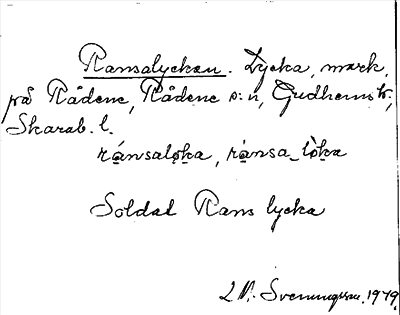 Ransalyckan. Lycka, mark,
på Rådene, Rådene s:n, Gudhems h.,
Skarab. l.
ránsalo̱ka, ránsa_lò̱ka
Soldat Rans lycka
Sveningsson. 1979.